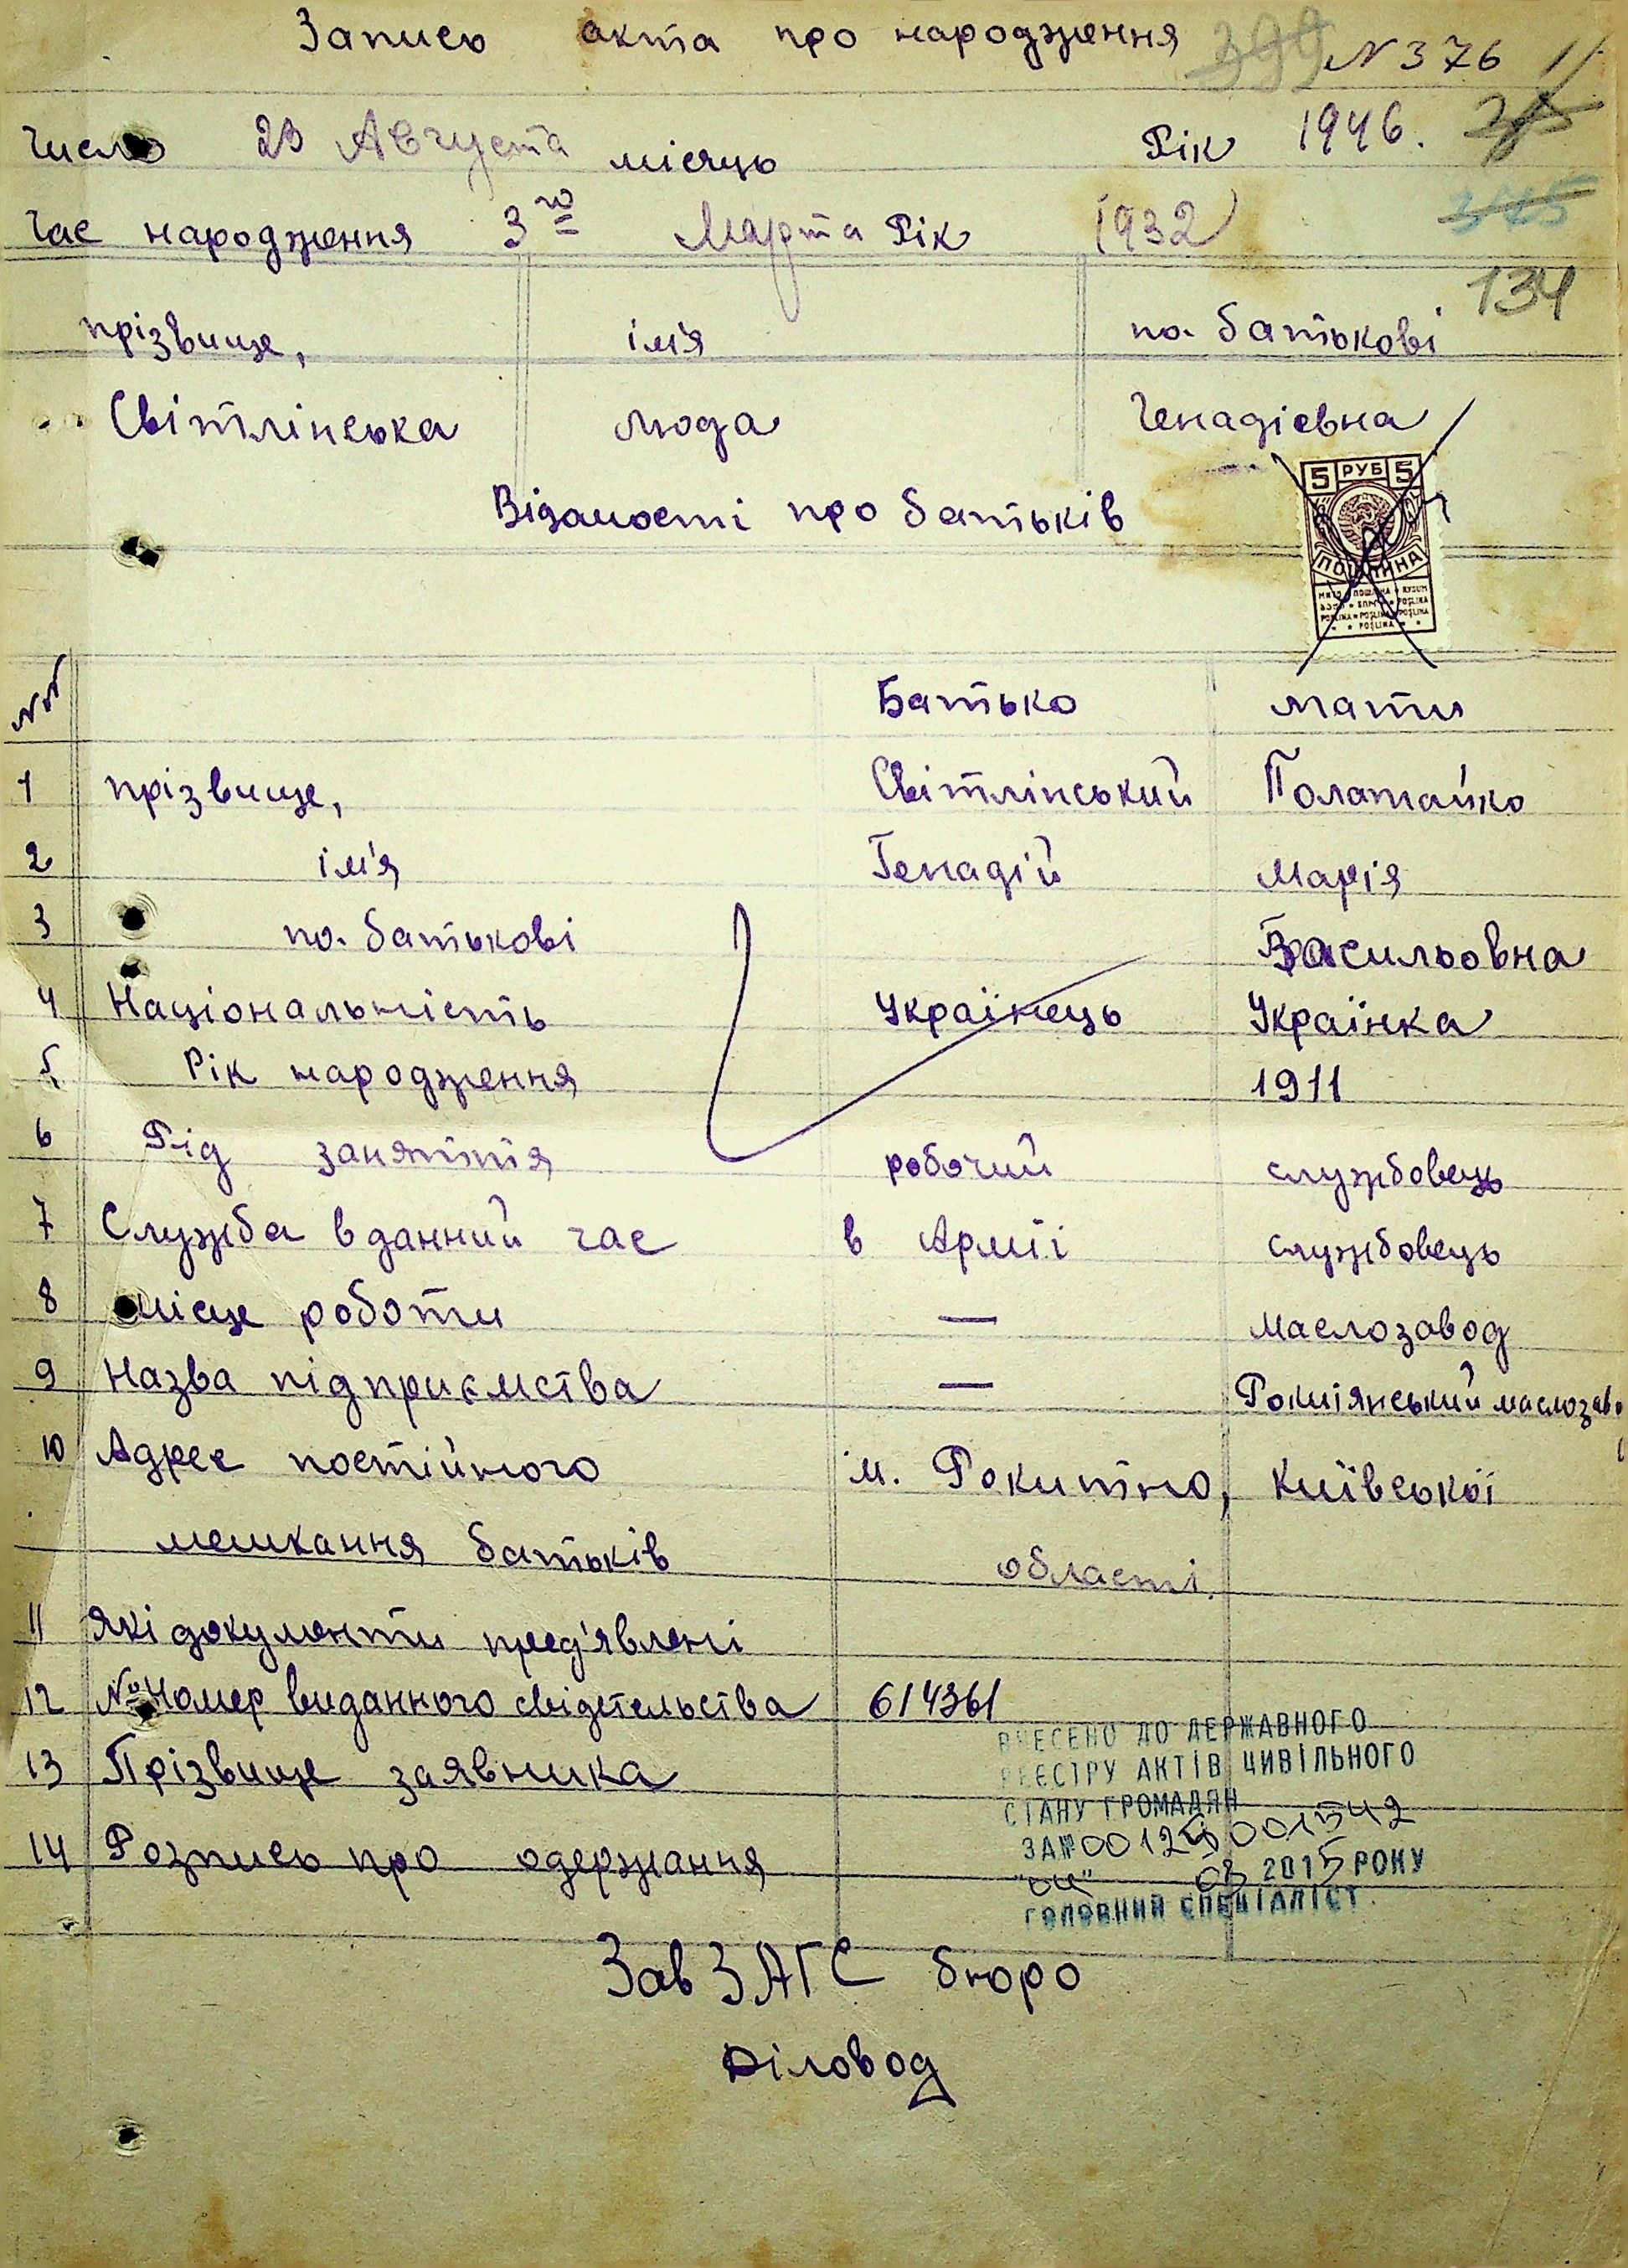 Запись акта про народження 399 N 376
Число 23 Августа місяць Рік 1946. 375
Час народження 3го Марта Рік 1932 375
134
прізвище, ім'я по батькові
Світлінська Люда Генадієвна
Відомості про батьків
5 РУБ 5
ПОШЛИНА
№№ Батько мати
1 прізвище, Світлінський Полатайко
2 ім'я Генадій Марія
3 по батькові Васильовна
4 Національність Українець Українка
5 Рік народження 1911
6 Рід заняття робочий службовець
7 Служба в данний час в Армії службовець
8 місце роботи — Маслозавод
9 Назва підприємства — Рокитянський маслозаво
10 Адрес постійного м. Рокитно, Київської
мешкання батьків області.
11 які документи пред'явлені
12 № Номер виданного свідетельства 614361
13 Прізвище заявника
14 Розпись про одержання
ВНЕСЕНО ДО ДЕРЖАВНОГО
РЕЄСТРУ АКТІВ ЦИВІЛЬНОГО
СТАНУ ГРОМАДЯН
ЗА № 2015 РОКУ
ГОЛОВНИЙ СПЕЦІАЛІСТ
Зав ЗАГС бюро
Діловод